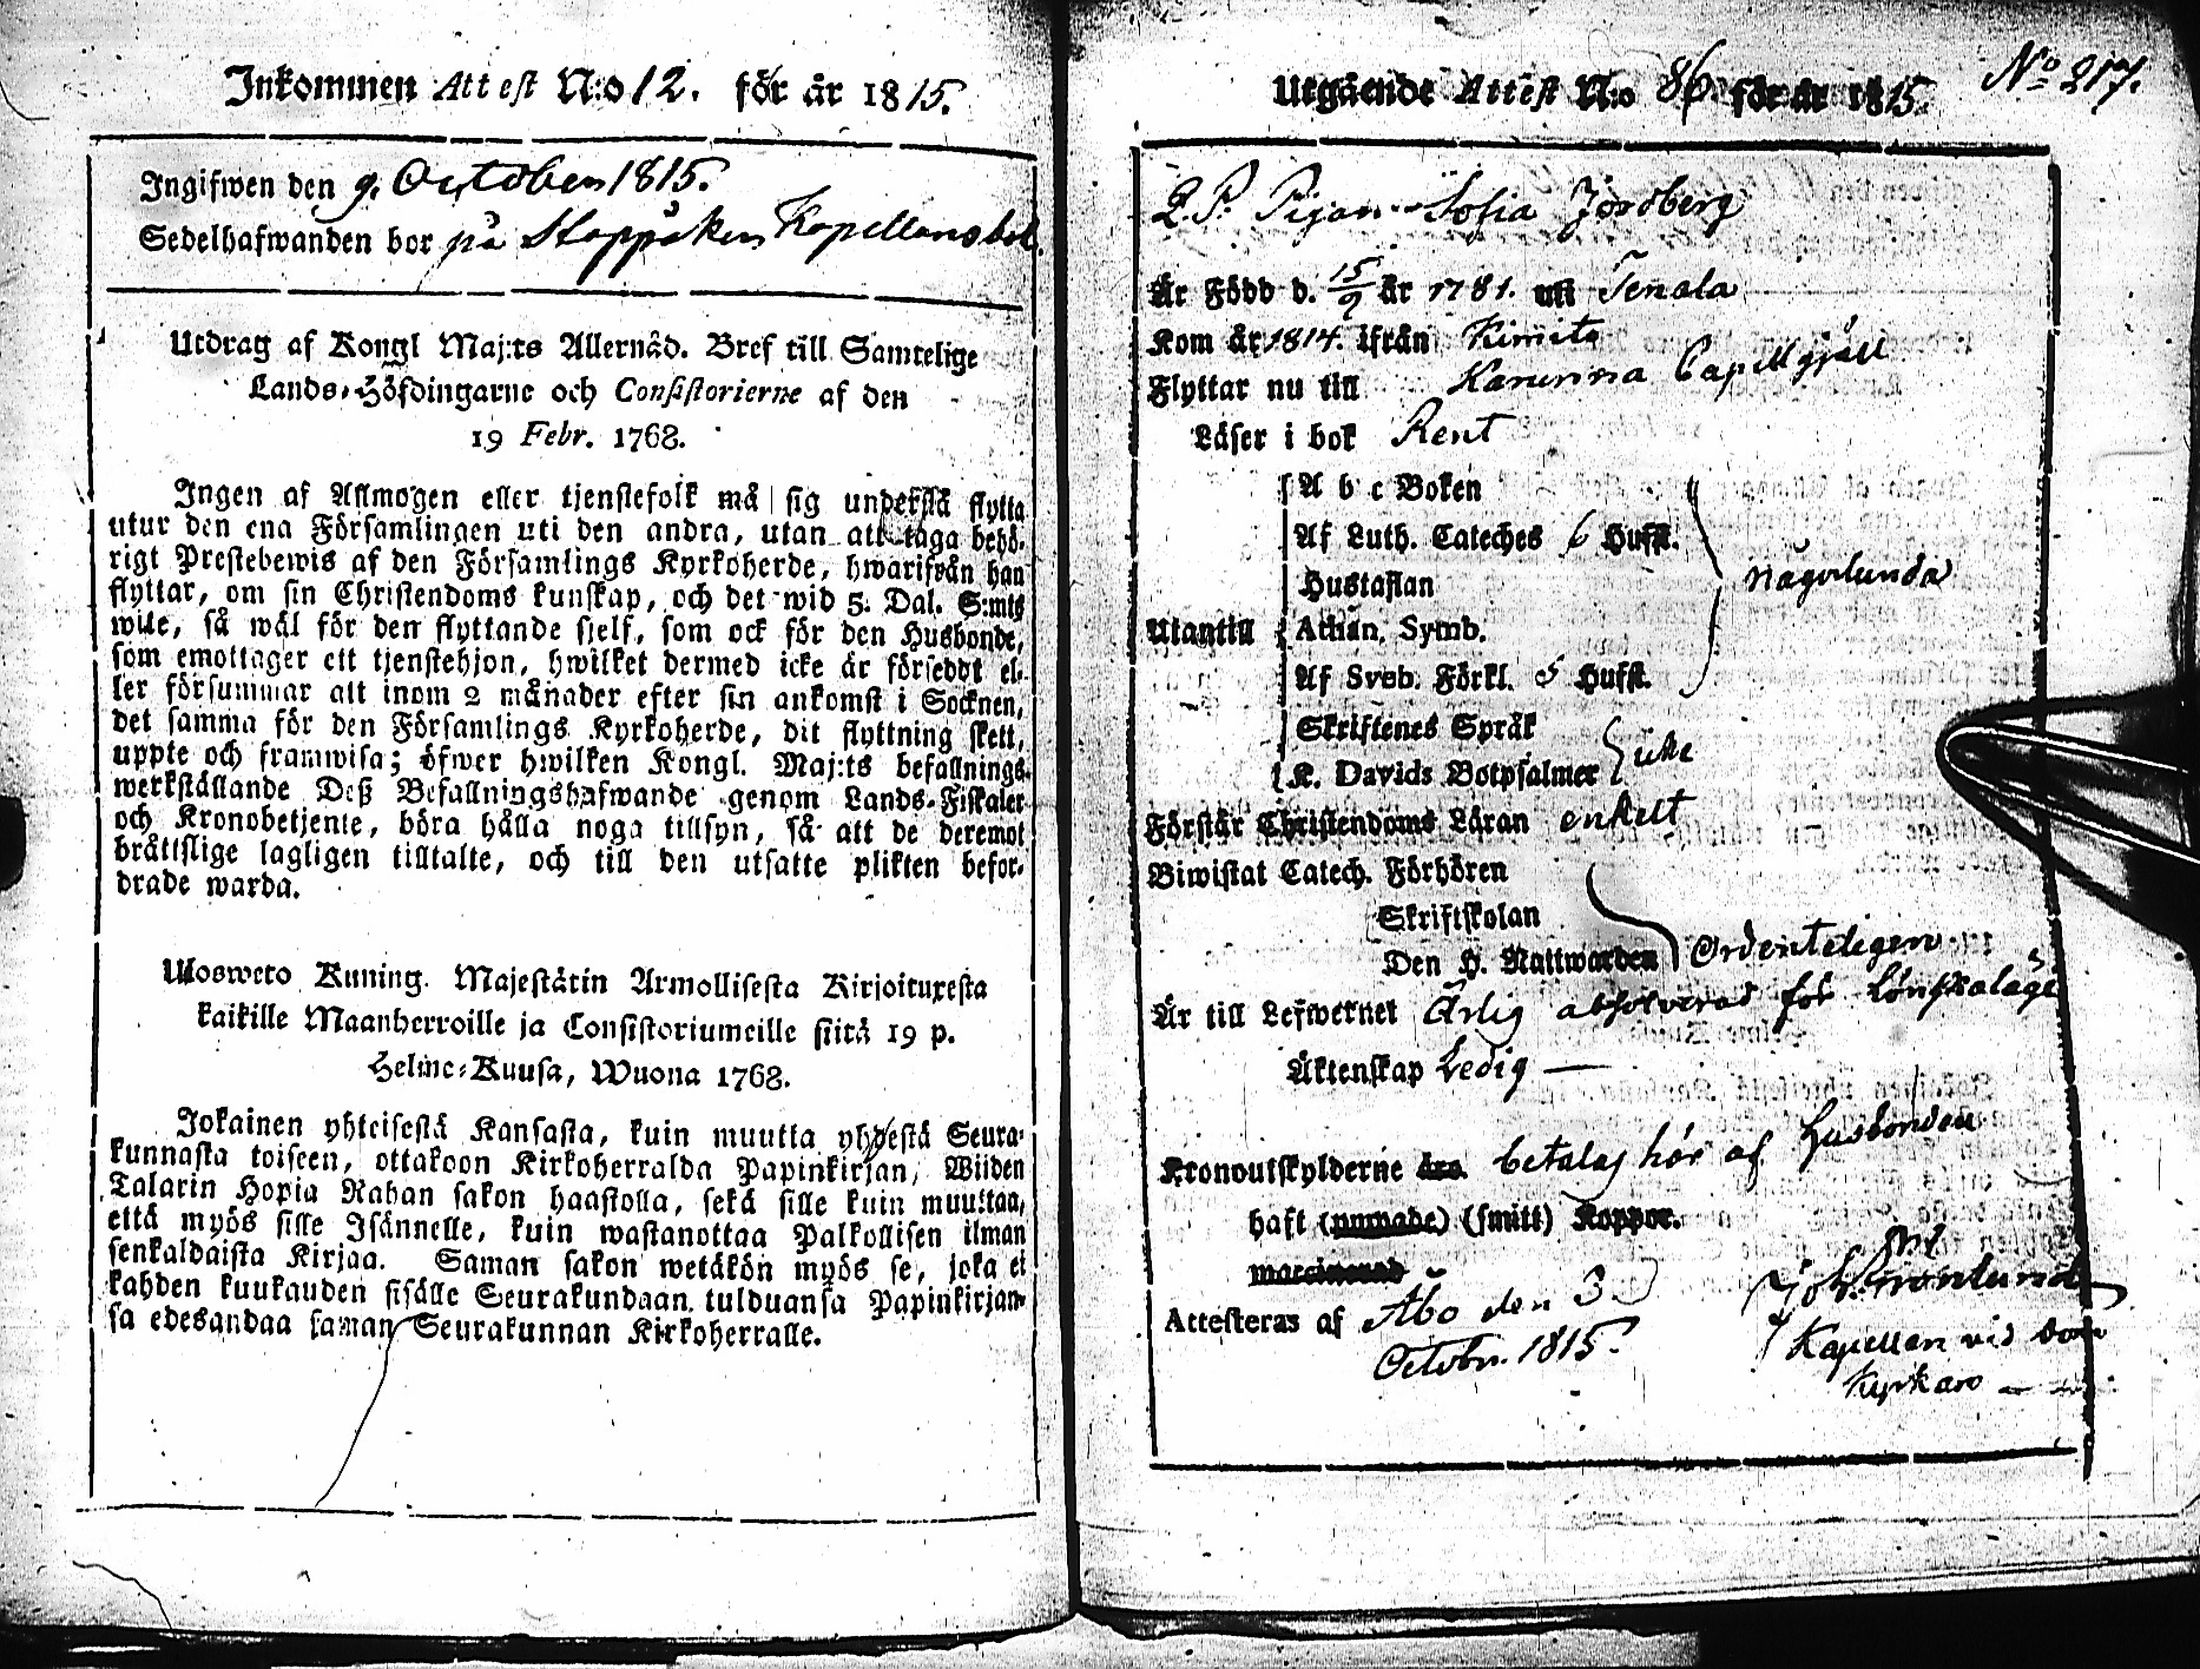 Inkommen Attest N:o 12. för år 1815.
Ingifwen den 9. October 1815.
Sedelhafwanden bor på Kapellansbol
Utdrag af Kongl Maj:ts Allernåd. Bref till Samtelige
Lands-Höfdingarne och Consistorierne af den
19 Febr. 1768.
Ingen af Allmogen eller tjenstefolk må sig understå flytta
utur den ena Församlingen uti den andra, utan att taga behö-
rigt Prestebewis af den Församlings Kyrkoherde, hwarifrån han
flyttar, om sin Christendoms kunskap, och det wid 5. Dal. S:mts
wite, så wäl för den flyttande sjelf, som ock för den Husbonde,
som emottager ett tjenstehjon, hwilket dermed icke är förseddt el-
ler försummar att inom 2 månader efter sin ankomst i Socknen,
det samma för den Församlings Kyrkoherde, dit flyttning skett,
uppte och framwisa; öfwer hwilken Kongl. Maj:ts befallnings-
werkställande Deß Befallningshafwande genom Lands-Fiskaler
och Kronobetjente, böra hålla noga tillsyn, så att de deremot
bråttslige lagligen tilltalte, och till den utsatte plikten befor-
drade warda.
Ulosweto Kuning. Majestätin Armollisesta Kirjoituxesta
kaikille Maanherroille ja Consistoriumeille siitä 19 p.
Helme-Kuusa, Wuona 1768.
Jokainen yhteisestä Kansasta, kuin muutta yhdestä Seura-
kunnasta toiseen, ottakoon Kirkoherralda Papinkirjan, Wiiden
Talarin Hopia Rahan sakon haastolla, sekä sille kuin muuttaa,
että myös sille Isännelle, kuin wastanottaa Palkollisen ilman
senkaldaista Kirjaa. Saman sakon wetäkön myös se, joka ei
kahden kuukauden sisälle Seurakundaan tulduansa Papinkirjan-
sa edesandaa saman Seurakunnan Kirkoherralle.
Utgående Attest N:o 86 för år 1815. No 217.
Pigan Sofia Jordberg
Är Född d. 15/9 år 1781. uti Tenala
Kom år 1814. ifrån Kimito
Flyttar nu till Karuna Capellgjäll
Läser i bok Rent
A b c Boken
Af Luth. Cateches 6 Hufst.
Hustaflan
Utantill Athan. Symb. någorlunda
Af Sveb. Förkl. 5 Hufst.
Skriftenes Språk
K. Davids Botpsalmer icke
Förstår Christendoms Läran enkelt
Biwistat Catech. Förhören
Skriftskolan
Den H. Nattwarden Ordenteligen
Är till Lefwernet Ärlig absolverad för Lönskaläge
Äktenskap Ledig —
Kronoutskylderne äro betalas här af Husbonden
haft (numade) (smitt) Koppor.
Attesteras af Åbo den 3
Octobr. 1815.
Kapellan vid Dom
Kyrkan